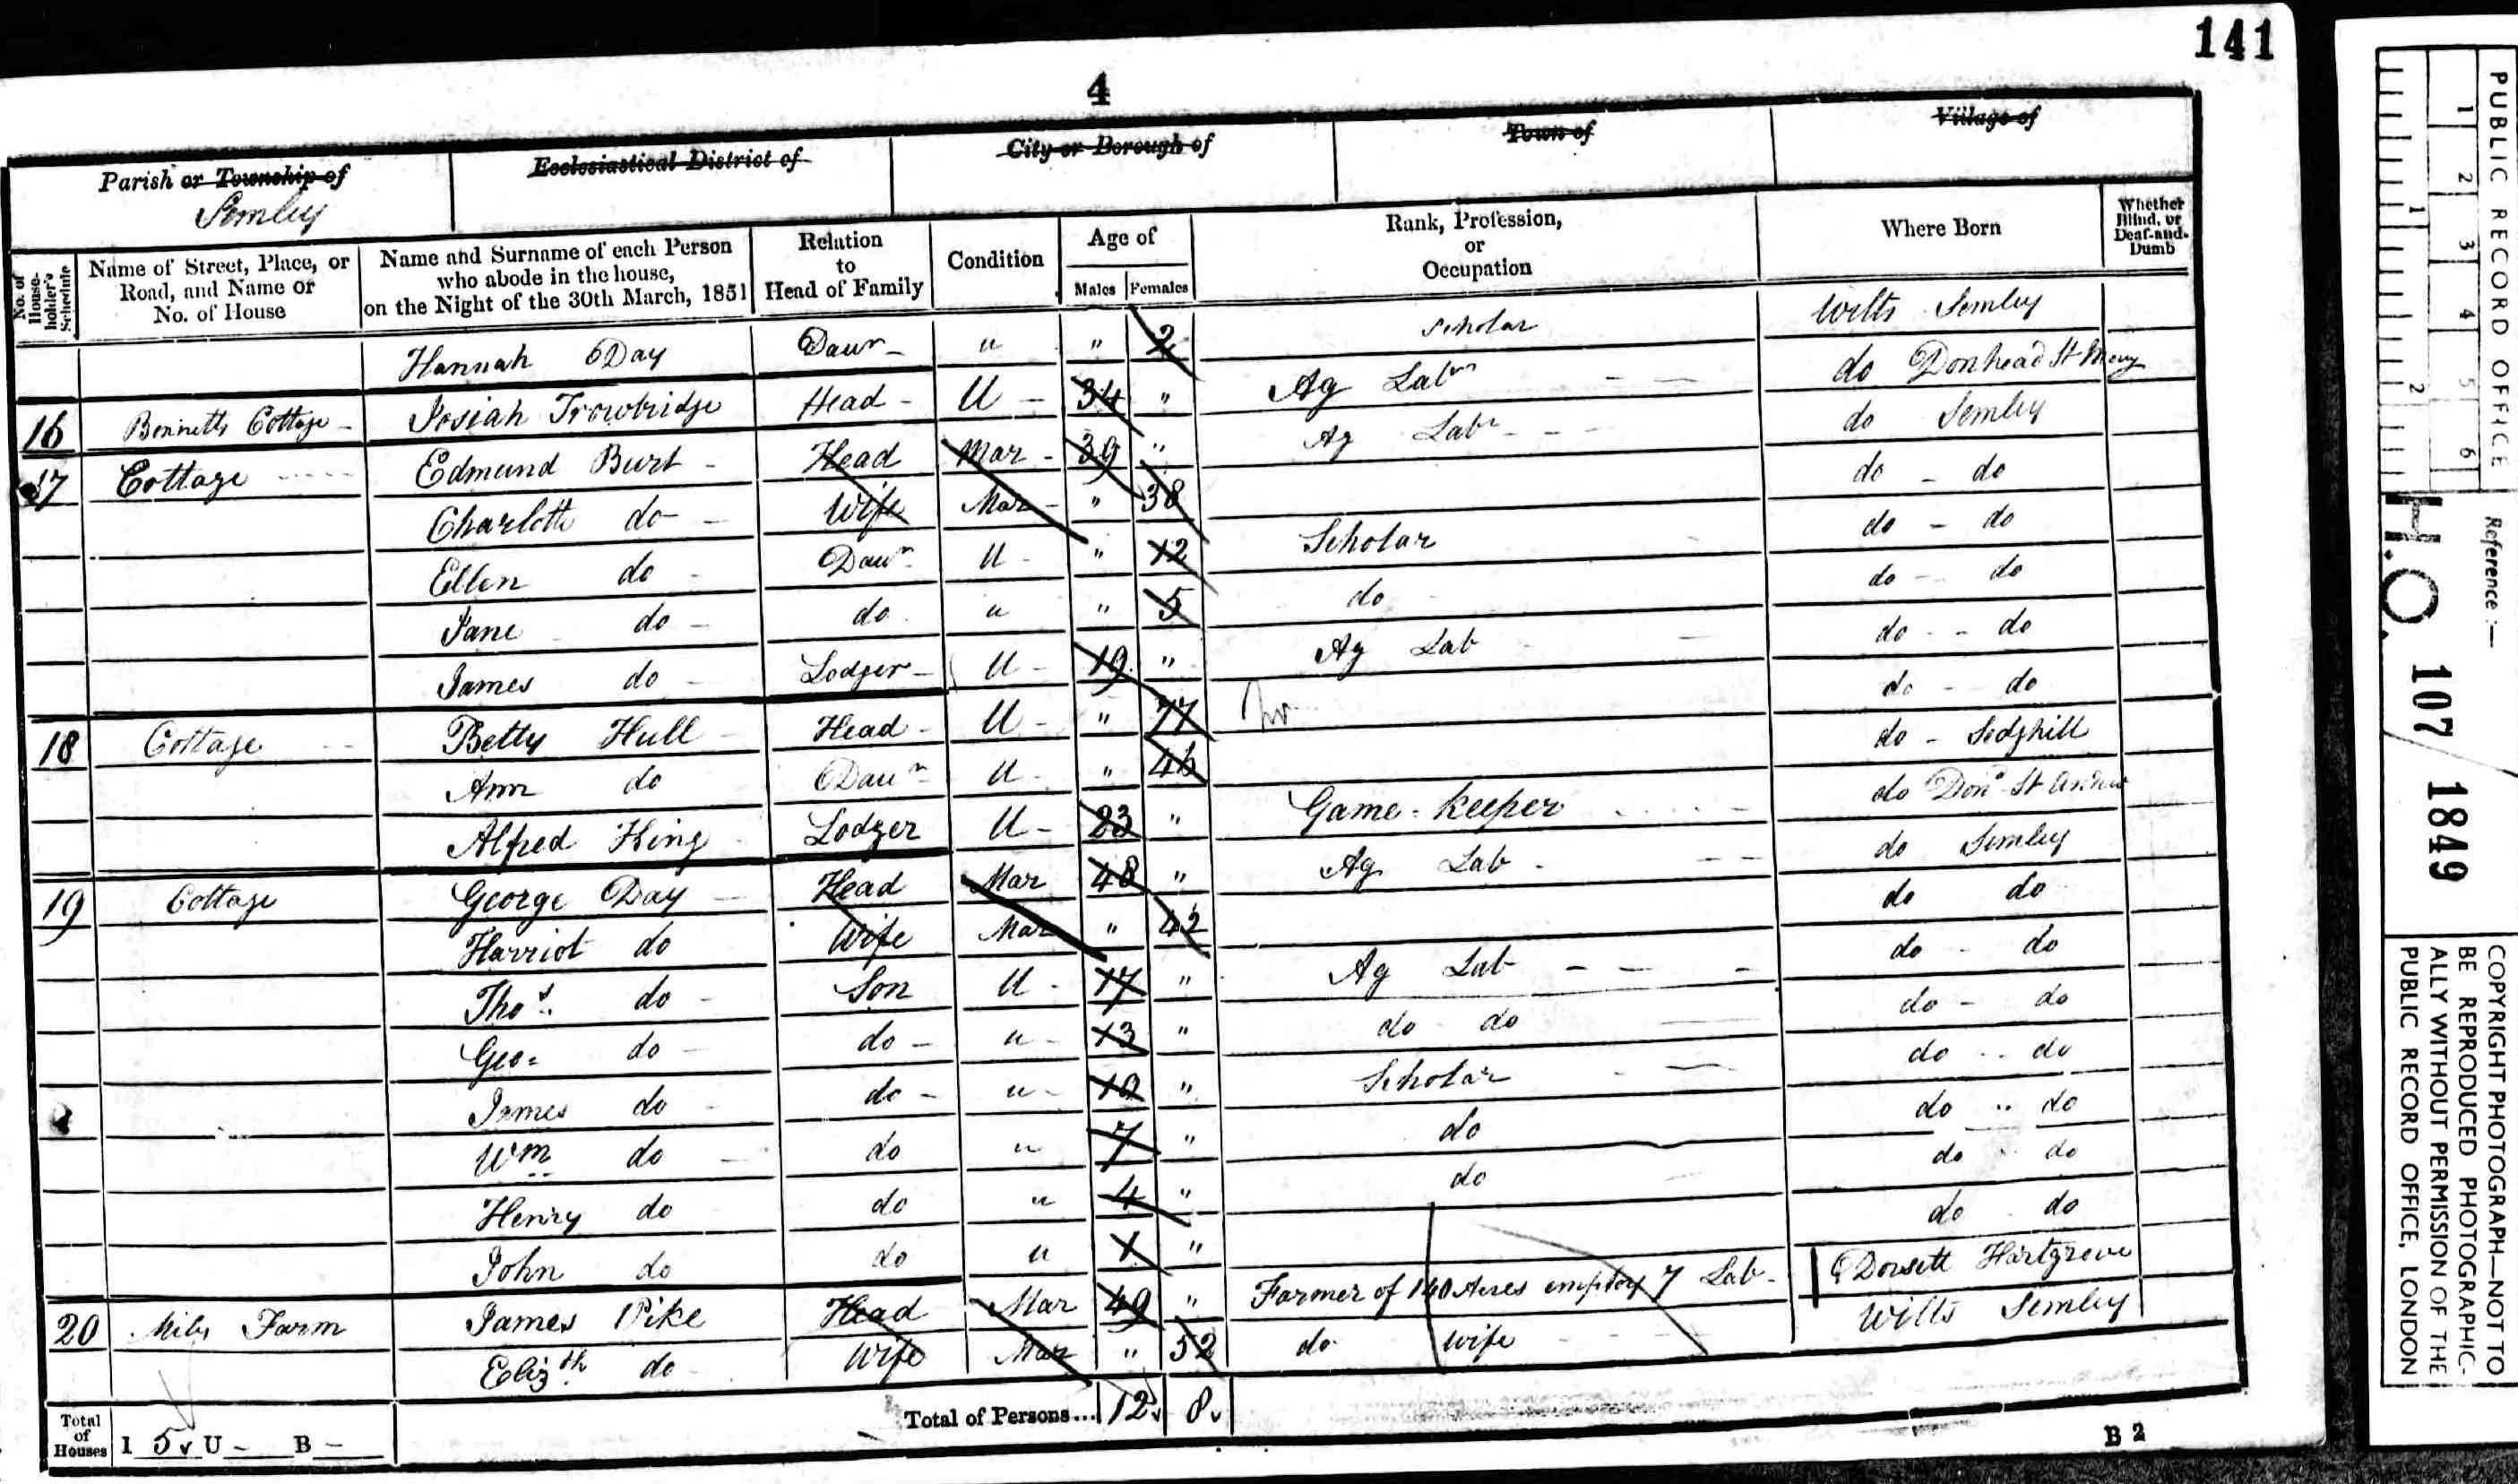 141
4
Parish or Township of Ecclesiastical District of City or Borough of Town of Village of
Semley
No. of House-holder's Schedule Name of Street, Place, or Road, and Name or No. of House Name and Surname of each Person who abode in the house, on the Night of the 30th March, 1851 Relation to Head of Family Condition Age of Males Females Rank, Profession, or Occupation Where Born Whether Blind, or Deaf-and-Dumb
Hannah Day Daur u " 2 Scholar Wilts Semley
16 Bennetts Cottage Josiah Trowbridge Head U 34 " Ag Labr do Donhead St Mary
17 Cottage Edmund Burt Head Mar 39 " Ag Labr do Semley
Charlotte do Wife Mar " 38 do do
Ellen do Daur U " 12 Scholar do do
Jane do do u " 5 do do do
James do Lodger U 19 " Ag Lab do do
18 Cottage Betty Hull Head U " 77 do do
Ann do Daur U " 46 do Sedghill
Alfred King Lodger U 23 " Game-keeper do Don St Andrew
19 Cottage George Day Head Mar 48 " Ag Lab do Semley
Harriot do Wife Mar " 42 do do
Thos do Son U 17 " Ag Lab do do
Geo= do do u 13 " do do do do
James do do u 10 " Scholar do do
Wm do do u 7 " do do do
Henry do do u 4 " do do do
John do do u 1 " do do
20 Farm James Pike Head Mar 49 " Farmer of 140 Acres employ 7 Lab Dorsett Hartgrove
Elizth do Wife Mar " 52 do wife Wilts Semley
Total of Houses I 5 U - B - Total of Persons... 12 8
B 2
PUBLIC RECORD OFFICE
1 2 3 4 5 6
1 2
Reference :—
H.O. 107 / 1849
COPYRIGHT PHOTOGRAPH—NOT TO
BE REPRODUCED PHOTOGRAPHIC-
ALLY WITHOUT PERMISSION OF THE
PUBLIC RECORD OFFICE, LONDON